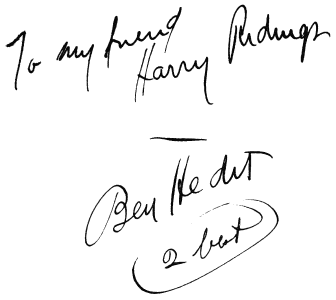 To my friend
Harry
Ben Hecht
2 best